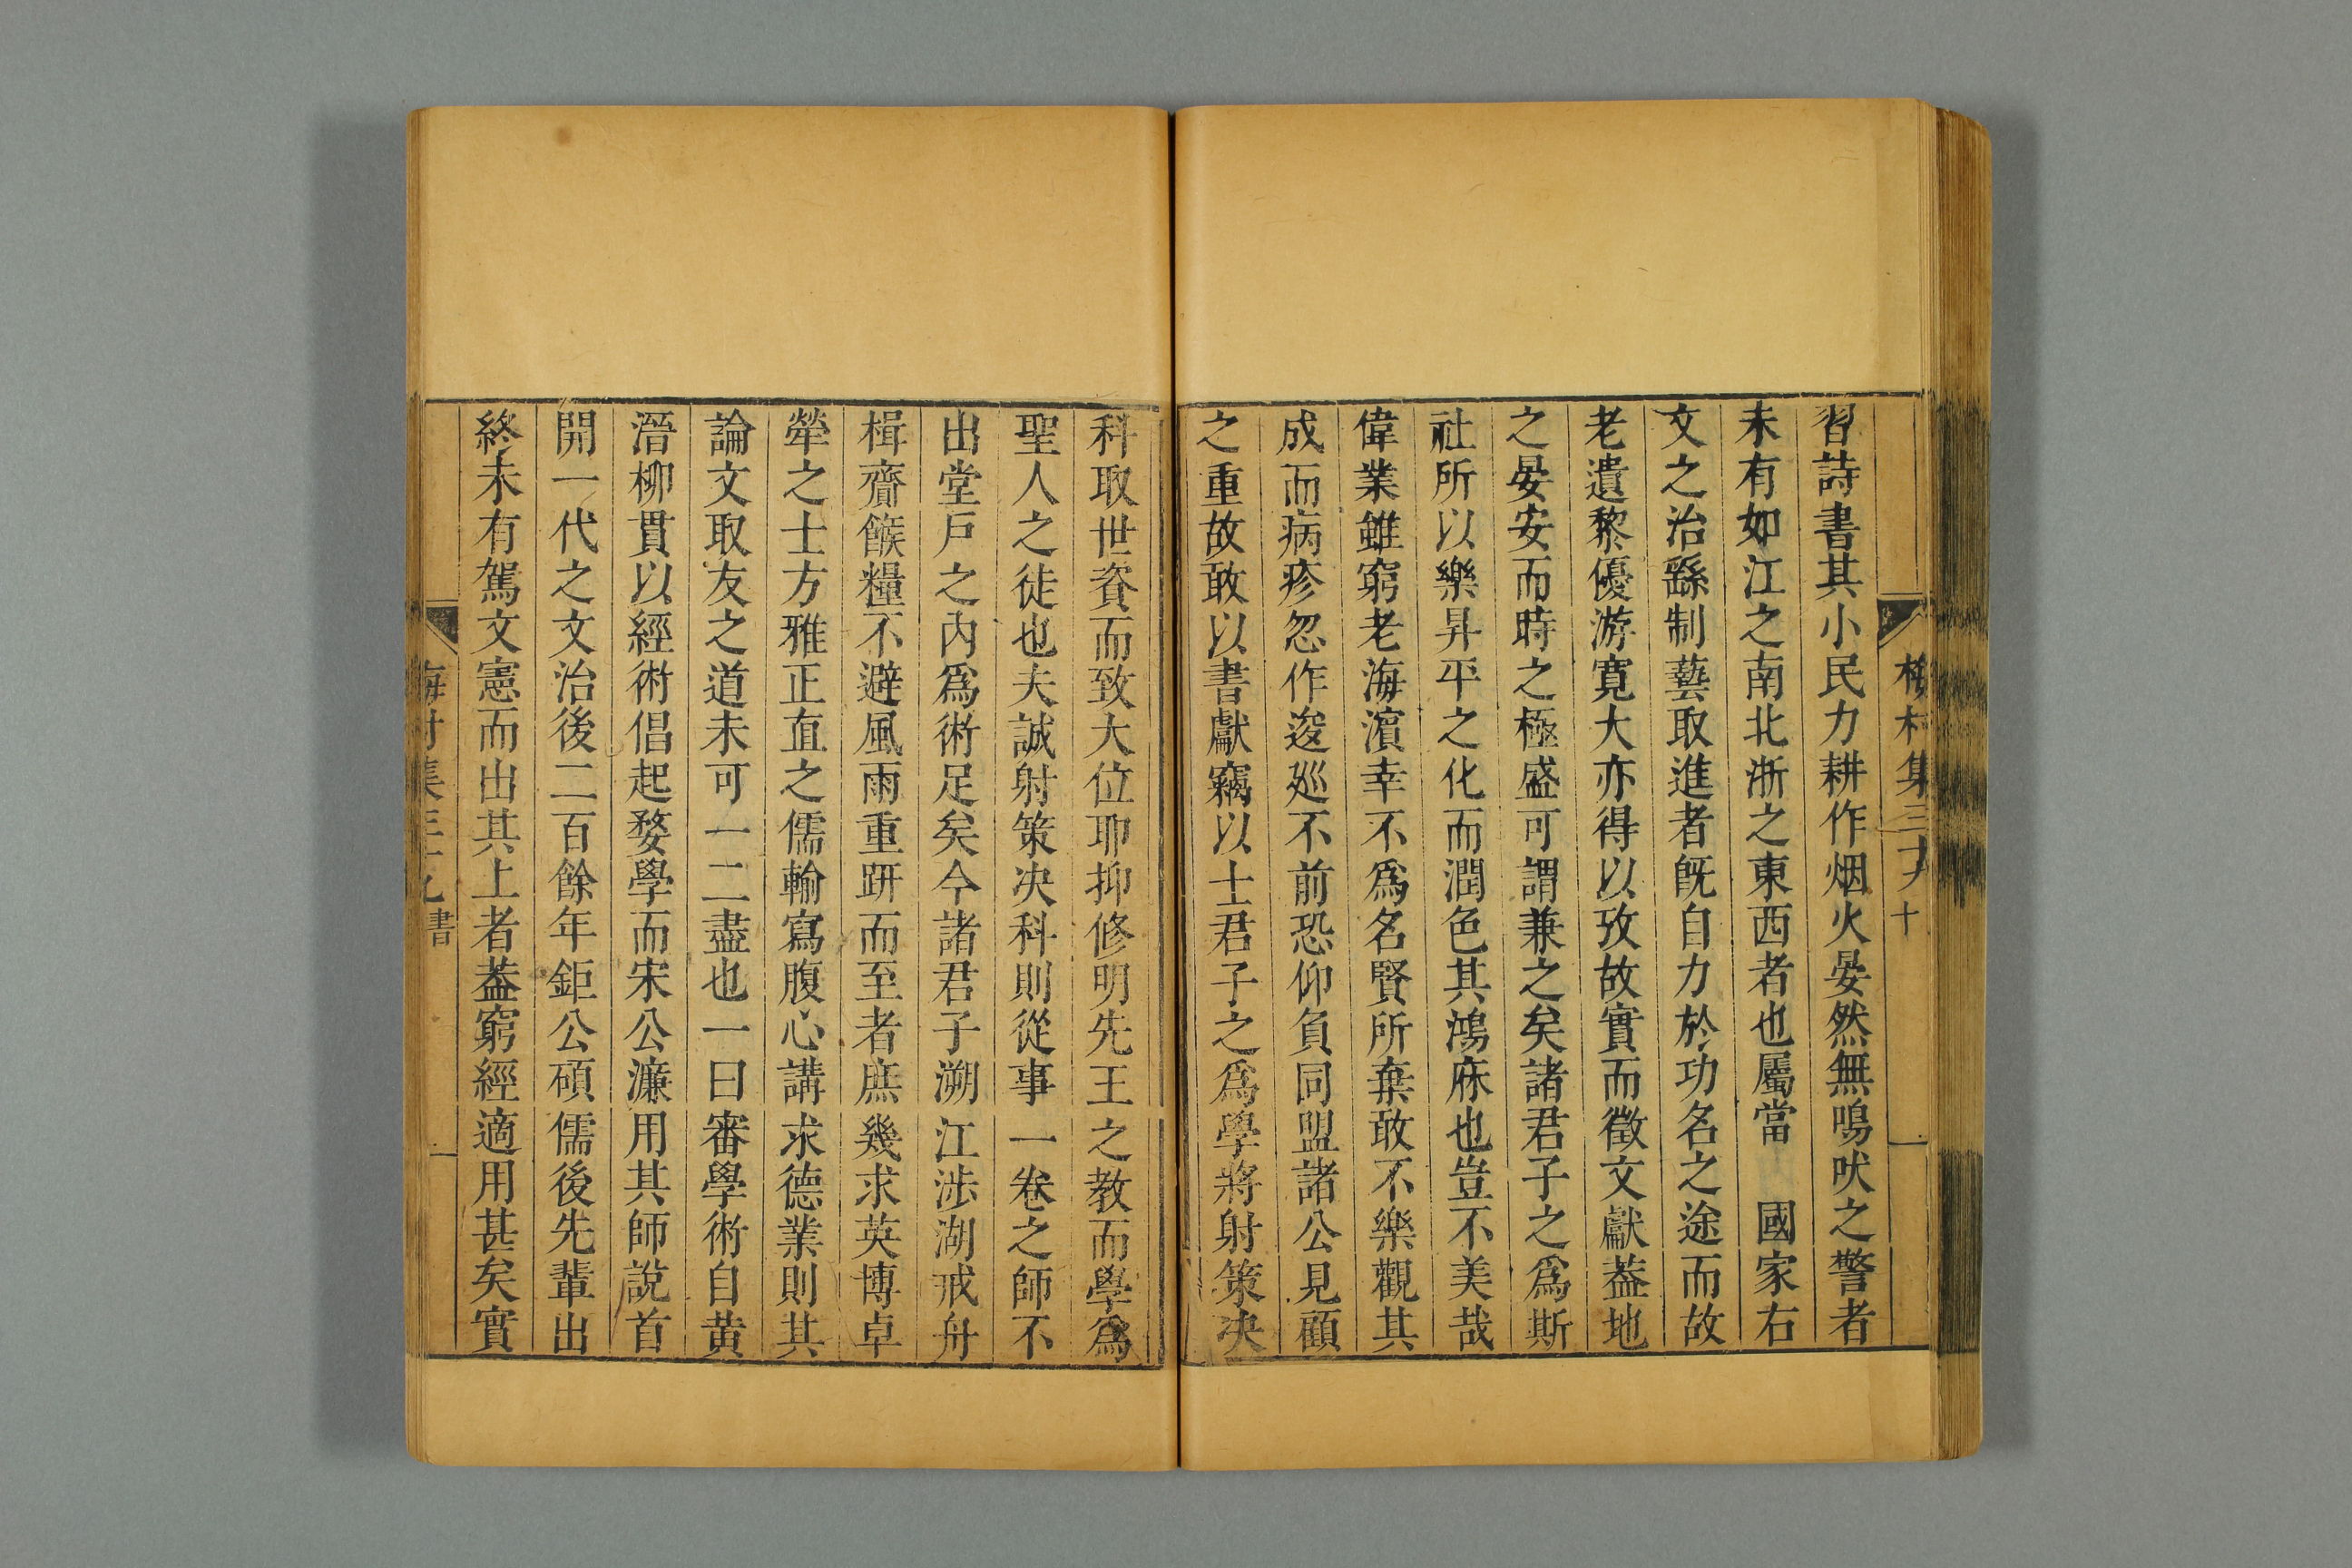 習詩書其小民力耕作烟火晏然無鳴吠之警者
未有如江之南北浙之東西者也屬當 國家右
文之治繇制藝取進者旣自力於功名之途而故
老遺黎優游寬大亦得以攷故實而徵文獻葢地
之晏安而時之極盛可謂兼之矣諸君子之爲斯
社所以樂昇平之化而潤色其鴻庥也豈不美哉
偉業雖窮老海濵幸不爲名賢所棄敢不樂觀其
成而病疹忽作逡廵不前恐仰負同盟諸公見顧
之重故敢以書獻竊以士君子之爲學將射策决
科取世資而致大位耶抑修明先王之教而學爲
聖人之徒也夫誠射策决科則從事一卷之師不
出堂戸之內爲術足矣今諸君子溯江涉湖戒舟
楫齎餱糧不避風雨重趼而至者庶幾求英博卓
犖之士方雅正直之儒輸寫腹心講求德業則其
論文取友之道未可一二盡也一曰審學術自黄
溍柳貫以經術倡起婺學而宋公濂用其師說首
開一代之文治後二百餘年鉅公碩儒後先輩出
終未有駕文憲而出其上者葢窮經適用甚矣實
梅村集 十
書